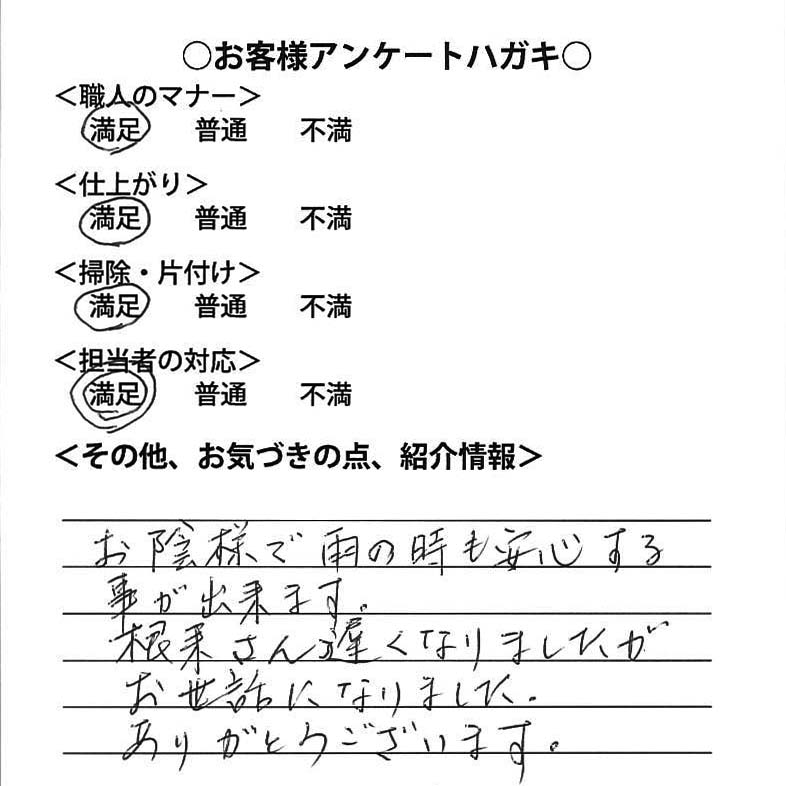 ○お客様アンケートハガキ○
＜職人のマナー＞
満足 普通 不満
＜仕上がり＞
満足 普通 不満
＜掃除・片付け＞
満足 普通 不満
＜担当者の対応＞
満足 普通 不満
＜その他、お気づきの点、紹介情報＞
お陰様で雨の時も安心する
事が出来ます。
根来さん遅くなりましたが
お世話になりました.
ありがとうございます。